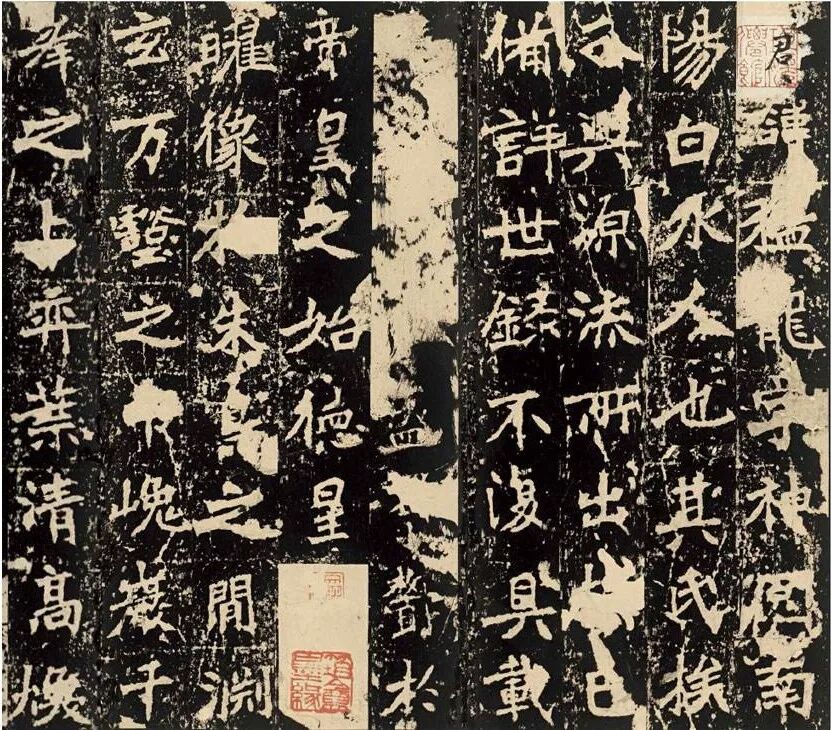 君諱猛龍字神囧南
陽白水人也其氏族
分興源流所出故已
備詳世錄不復具載
欝於
帝皇之始德星
曜像於朱鳥之閒淵
玄万壑之中巍巖千
峯之上弈葉清高煥